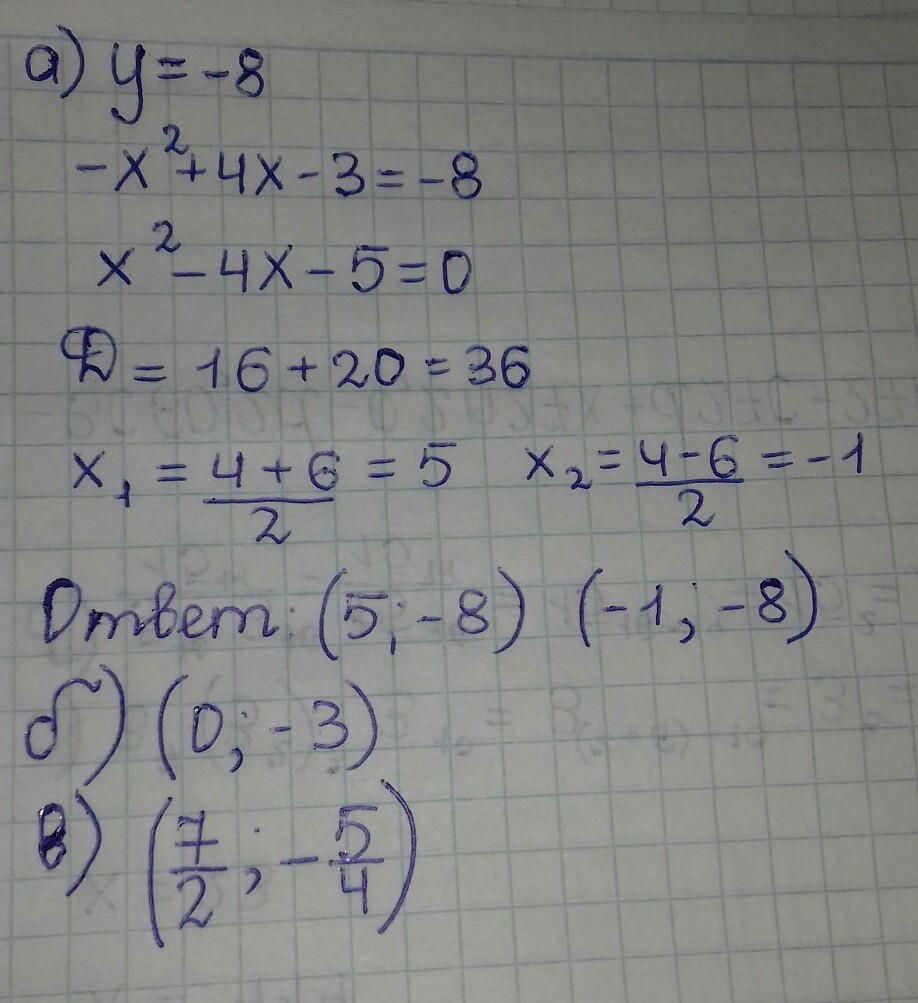 а) y = -8
-x² + 4x - 3 = -8
x² - 4x - 5 = 0
D = 16 + 20 = 36
x₁ = (4 + 6)/2 = 5 x₂ = (4 - 6)/2 = -1
Ответ: (5; -8) (-1; -8)
б) (0; -3)
в) (7/2; -5/4)